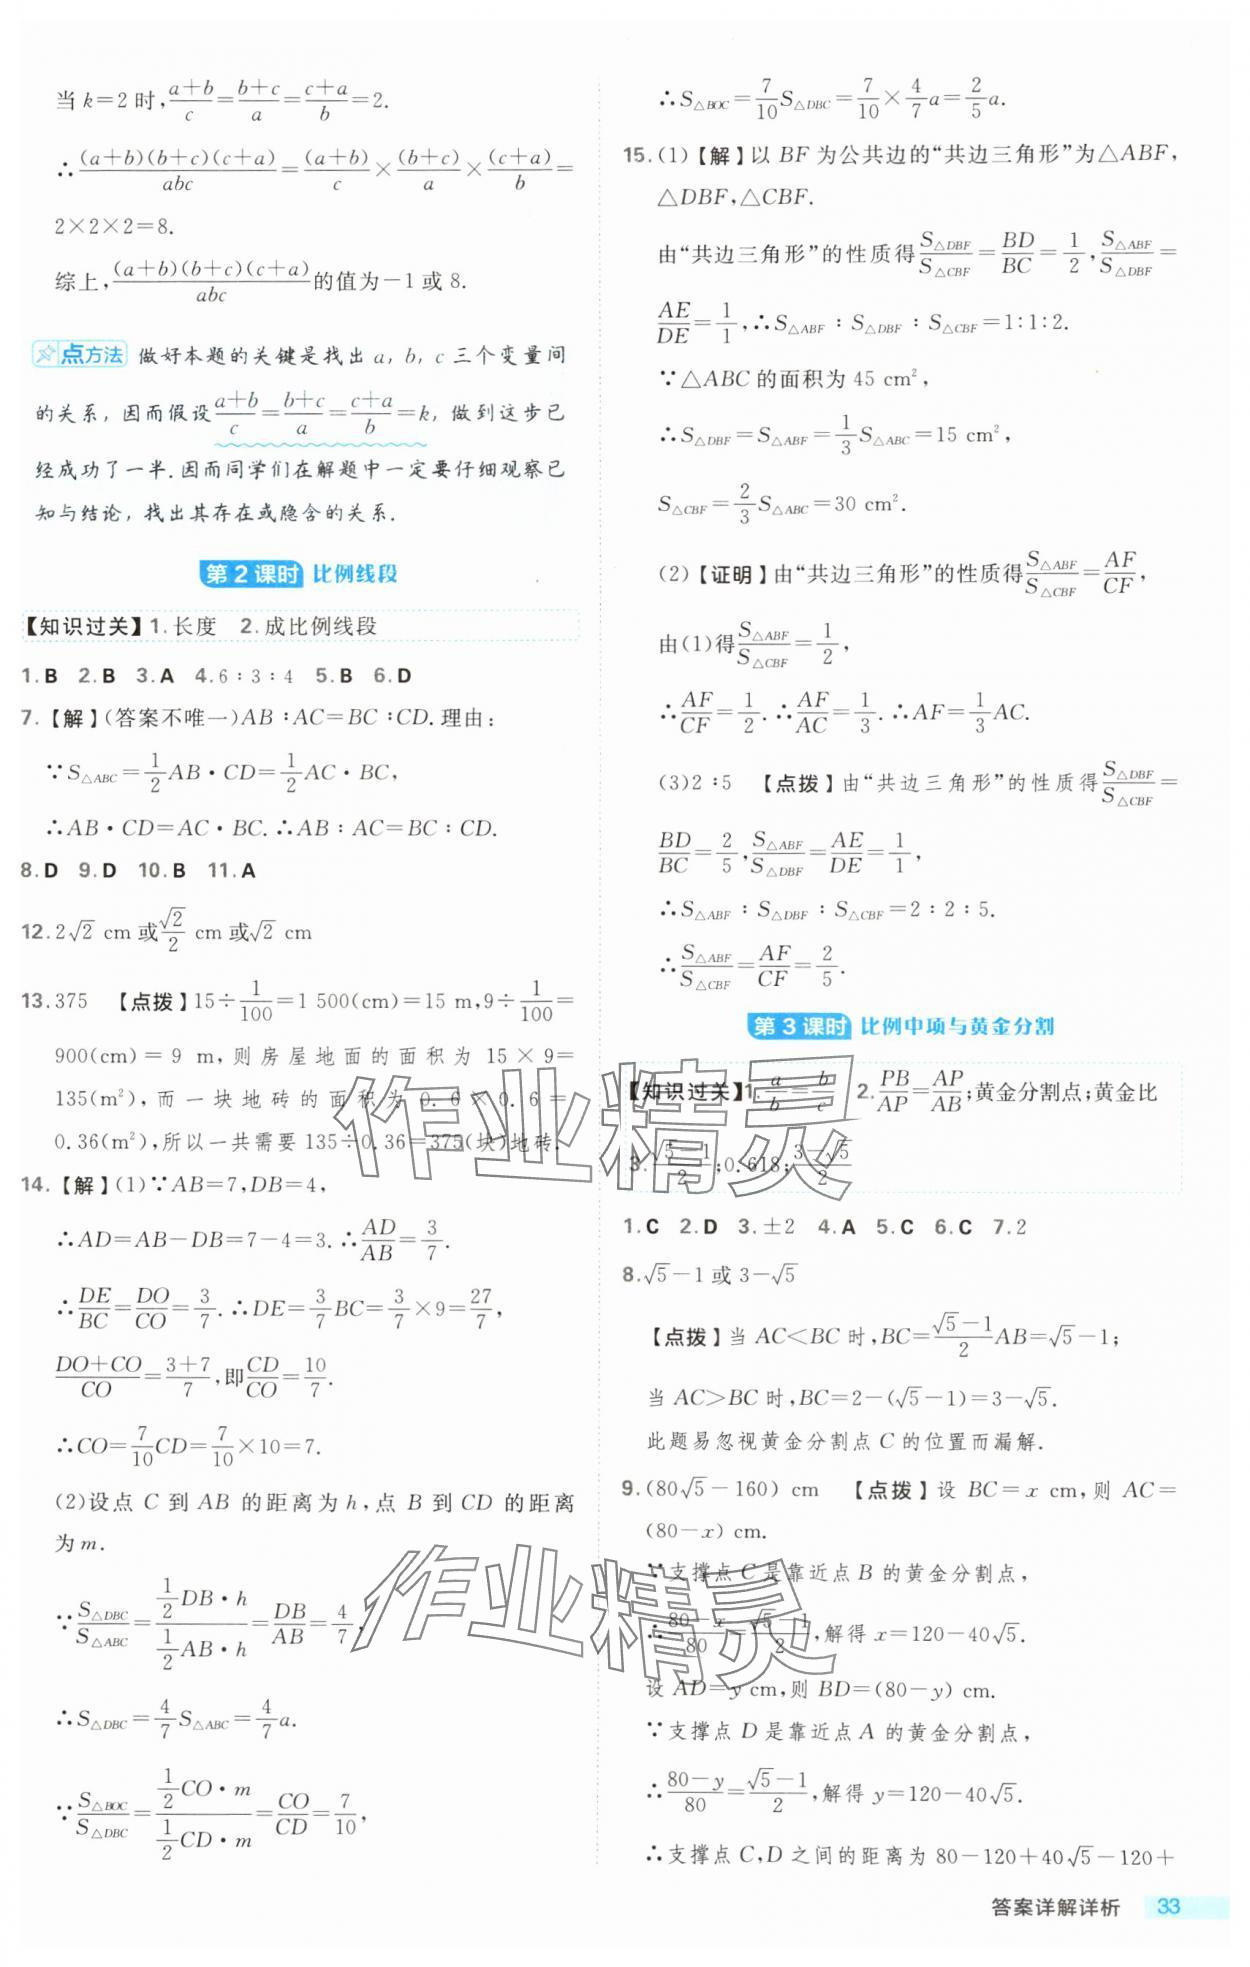 当 k=2 时, (a+b)/c=(b+c)/a=(c+a)/b=2.
∴(a+b)(b+c)(c+a)/abc=(a+b)/c×(b+c)/a×(c+a)/b=
2×2×2=8.
综上, (a+b)(b+c)(c+a)/abc的值为-1或8.
点方法 做好本题的关键是找出 a, b, c 三个变量间
的关系, 因而假设(a+b)/c=(b+c)/a=(c+a)/b=k, 做到这步已
经成功了一半. 因而同学们在解题中一定要仔细观察已
知与结论, 找出其存在或隐含的关系.
第2课时 比例线段
【知识过关】1.长度 2.成比例线段
1.B 2.B 3.A 4.6∶3∶4 5.B 6.D
7.【解】(答案不唯一)AB∶AC=BC∶CD.理由:
∵S△ABC=1/2AB·CD=1/2AC·BC,
∴AB·CD=AC·BC.∴AB∶AC=BC∶CD.
8.D 9.D 10.B 11.A
12.2√2 cm或√2/2 cm或√2 cm
13.375 【点拨】15÷1/100=1 500(cm)=15 m,9÷1/100=
900(cm)=9 m,则房屋地面的面积为15×9=
135(m²),而一块地砖的面积为0.6×0.6=
0.36(m²),所以一共需要135÷0.36=375(块)地砖.
14.【解】(1)∵AB=7,DB=4,
∴AD=AB-DB=7-4=3.∴AD/AB=3/7.
∴DE/BC=DO/CO=3/7.∴DE=3/7BC=3/7×9=27/7,
(DO+CO)/CO=(3+7)/7,即CD/CO=10/7.
∴CO=7/10CD=7/10×10=7.
(2)设点 C 到 AB 的距离为 h,点 B 到 CD 的距离
为 m.
∵S△DBC/S△ABC=(1/2DB·h)/(1/2AB·h)=DB/AB=4/7,
∴S△DBC=4/7S△ABC=4/7a.
∵S△BOC/S△DBC=(1/2CO·m)/(1/2CD·m)=CO/CD=7/10,
∴S△BOC=7/10S△DBC=7/10×4/7a=2/5a.
15.(1)【解】以 BF 为公共边的“共边三角形”为△ABF,
△DBF,△CBF.
由“共边三角形”的性质得S△DBF/S△CBF=BD/BC=1/2,S△ABF/S△DBF=
AE/DE=1/1,∴S△ABF∶S△DBF∶S△CBF=1:1:2.
∵△ABC 的面积为 45 cm²,
∴S△DBF=S△ABF=1/3S△ABC=15 cm²,
S△CBF=2/3S△ABC=30 cm².
(2)【证明】由“共边三角形”的性质得S△ABF/S△CBF=AF/CF,
由(1)得S△ABF/S△CBF=1/2,
∴AF/CF=1/2.∴AF/AC=1/3.∴AF=1/3AC.
(3)2∶5 【点拨】由“共边三角形”的性质得S△DBF/S△CBF=
BD/BC=2/5,S△ABF/S△DBF=AE/DE=1/1,
∴S△ABF∶S△DBF∶S△CBF=2∶2∶5.
∴S△ABF/S△CBF=AF/CF=2/5.
第3课时 比例中项与黄金分割
【知识过关】1.a/b=b/c 2.PB/AP=AP/AB;黄金分割点;黄金比
3.(√5-1)/2;0.618;(3-√5)/2
1.C 2.D 3.±2 4.A 5.C 6.C 7.2
8.√5-1或3-√5
【点拨】当 AC<BC 时,BC=(√5-1)/2AB=√5-1;
当 AC>BC 时,BC=2-(√5-1)=3-√5.
此题易忽视黄金分割点 C 的位置而漏解.
9.(80√5-160) cm 【点拨】设 BC=x cm,则 AC=
(80-x) cm.
∵支撑点 C 是靠近点 B 的黄金分割点,
∴(80-x)/80=(√5-1)/2,解得 x=120-40√5.
设 AD=y cm,则 BD=(80-y) cm.
∵支撑点 D 是靠近点 A 的黄金分割点,
∴(80-y)/80=(√5-1)/2,解得 y=120-40√5.
∴支撑点 C,D 之间的距离为 80-120+40√5-120+
答案详解详析 33
作业精灵
作业精灵